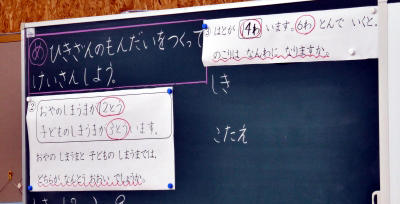 め ひきざんのもんだいをつくって
けいさんしよう。
② おやのしまうまが 12とう
子どものしまうまが 3とう います。
おやの しまうまと 子どもの しまうまでは、
どちらが なんとう おおいでしょうか。
③ はとが 14わ います。6わ とんで いくと、
のこりは なんわに なりますか。
しき
こたえ